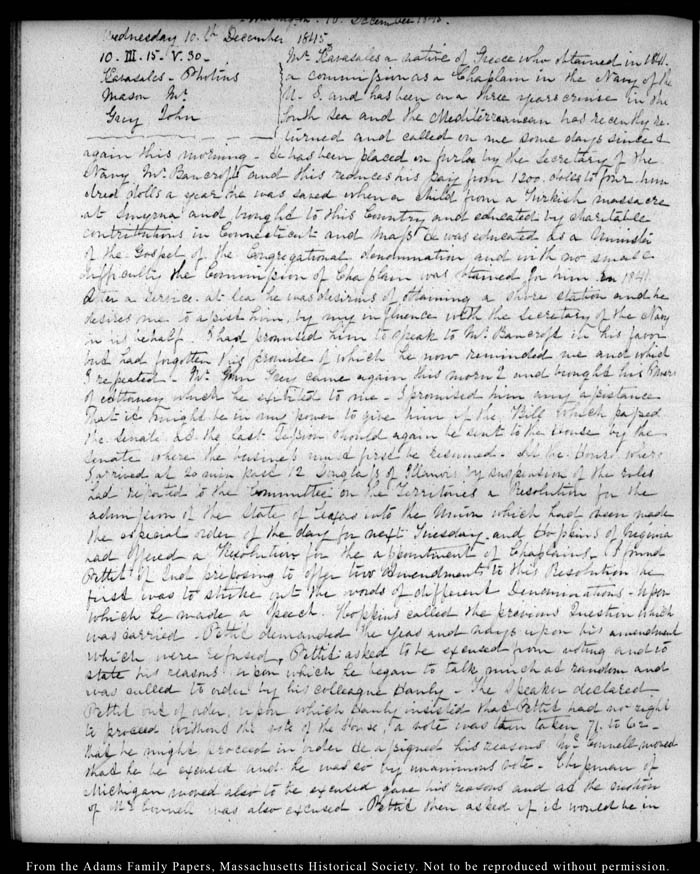 Washington. 10. December 1845.
Wednesday 10.th December 1845
10 - III. 15 - V. 30 - Mr. Kavasales a native of Greece who obtained in 1841.
Kavasales - Photius a commission as a Chaplain in the Navy of the
Mason Mr U. S. and has been on a three years cruise in the
Grey John South Sea and the Mediterranean has recently re-
turned and called on me some days since &
again this morning - He has been placed on furlo by the Secretary of the
Navy Mr. Bancroft and this reduces his pay from 1200. dolls to four hun
dred dolls a year he was saved when a child from a Turkish massacre
at Smyrna and brought to this Country and educated by charitable
contributions in Connecticut and Mass. He was educated as a Minister
of the Gospel of the Congregational denomination and with no small
difficulty the Commission of Chaplain was obtained for him in 1841.
After a service at Sea he was desirous of obtaining a shore station and he
desires me to assist him by my influence with the Secretary of the Navy
in his behalf. I had promised him to speak to Mr. Bancroft in his favor
but had forgotten my promise of which he now reminded me and which
I repeated - Mr. John Grey came again this morng and brought his Power
of attorney which he exhibited to me - I promised him any assistance
that it might be in my power to give him if the Bill which passed
the Senate at the last Session should again be sent to the House by the
Senate where the business must first be resumed - At the House where
I arrived at 20 min past 12 Douglass of Illinois by suspension of the rules
had reported to the Committee on the Territories a Resolution for the
admission of the State of Texas into the Union which had been made
the especial order of the day for next Tuesday - and Hopkins of Virginia
had offered a Resolution for the appointment of Chaplains - I found
Pettit of Ind preposing to offer two Amendments to this Resolution the
first was to strike out the words of different Denominations - upon
which he made a speech. Hopkins called the previous Question which
was carried - Pettit demanded the yeas and nays upon his amendment
which were refused, Pettit asked to be excused from voting and to
state his reasons upon which he began to talk much at random and
was called to order by his colleague Hanly - The Speaker declared
Pettit out of order, upon which Hanly insisted that Pettit had no right
to proceed without the vote of the House, a vote was then taken 71. to 62 -
that he might proceed in order he assigned his reasons Mc.Connell moved
that he be excused and he was so by unanimous vote - Chapman of
Michigan moved also to be excused gave his reasons and at the motion
of Mc Connell was also excused - Pettit then asked if it would be in
From the Adams Family Papers, Massachusetts Historical Society. Not to be reproduced without permission.